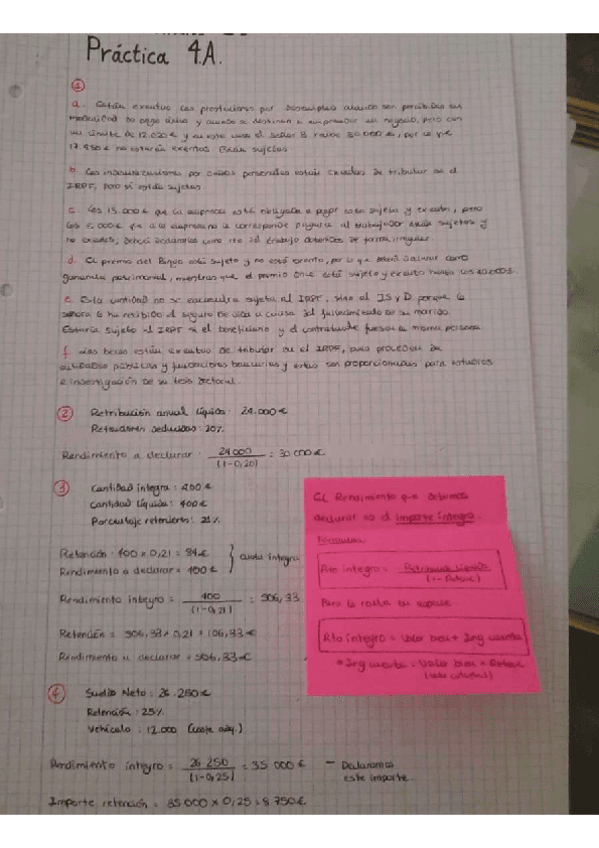 Práctica 4.A.
1
a. Están exentas las prestaciones por desempleo cuando son percibidas en
modalidad de pago único y cuando se destinan a emprender un negocio, pero con
un límite de 12.020€ y en este caso el señor B recibe 30.000€, por lo que
17.980€ no estarán exentos. Están sujetas
b. Las indemnizaciones por daños personales están exentas de tributar en el
IRPF, pero sí están sujetas.
c. Los 15.000€ que la empresa está obligada a pagar están sujetos y exentos, pero
los 5.000€ que a la empresa no le corresponde pagarle al trabajador están sujetos y
no exentos, deberá declararlos como rto del trabajo obtenidos de forma irregular.
d. El premio del Bingo está sujeto y no está exento, por lo que deberá declarar como
ganancia patrimonial, mientras que el premio Once está sujeto y exento hasta los
e. Esta cantidad no se encuentra sujeta al IRPF, sino al ISyD porque la
señora ha recibido el seguro de vida a causa del fallecimiento de su marido.
Estaría sujeto al IRPF si el beneficiario y el contratante fuesen la misma persona
f. Las becas están exentas de tributar en el IRPF, pues proceden de
entidades públicas y fundaciones bancarias y estas son proporcionadas para estudios
e investigación de su tesis doctoral.
2 Retribución anual líquida: 24.000€
Retenciones deducidas: 20%
Rendimiento a declarar: 24000 / (1-0,20) = 30000€
3 Cantidad íntegra: 400€
Cantidad líquida: 400€
Porcentaje retenciones: 21%
Retención: 400 x 0,21 = 84€
Rendimiento a declarar = 400€
} cuota íntegra
Rendimiento íntegro = 400 / (1-0,21) = 506,33
Retención = 506,33 x 0,21 = 106,33€
Rendimiento a declarar = 506,33€
El Rendimiento que debemos
declarar es el importe íntegro.
Fórmulas
Rto íntegro = Retribución líquida / (1-Retenc)
Para la renta en especie
Rto íntegro = Valor + Ing cuenta
* Ing cuenta = Valor x Retenc
4 Sueldo Neto: 26.250€
Retención: 25%
Vehículo: 12.000 (coste adq.)
Rendimiento íntegro = 26 250 / (1-0,25) = 35 000€ - Declaramos
este importe.
Importe retención = 35 000 x 0,25 = 8 750€